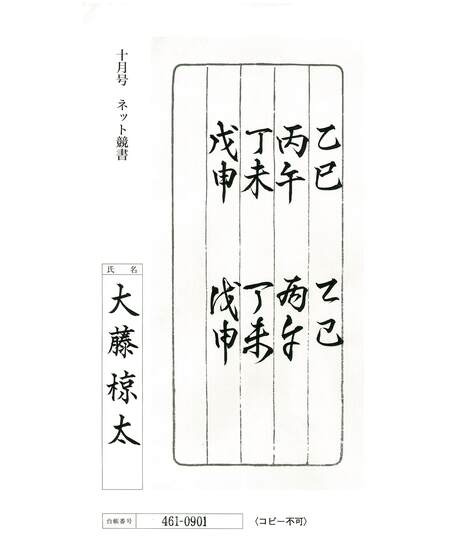 十月号 ネット競書
乙巳 乙巳
丙午 丙午
丁未 丁未
戊申 戊申
氏名
大藤椋太
台帳番号 461-0901 〈コピー不可〉